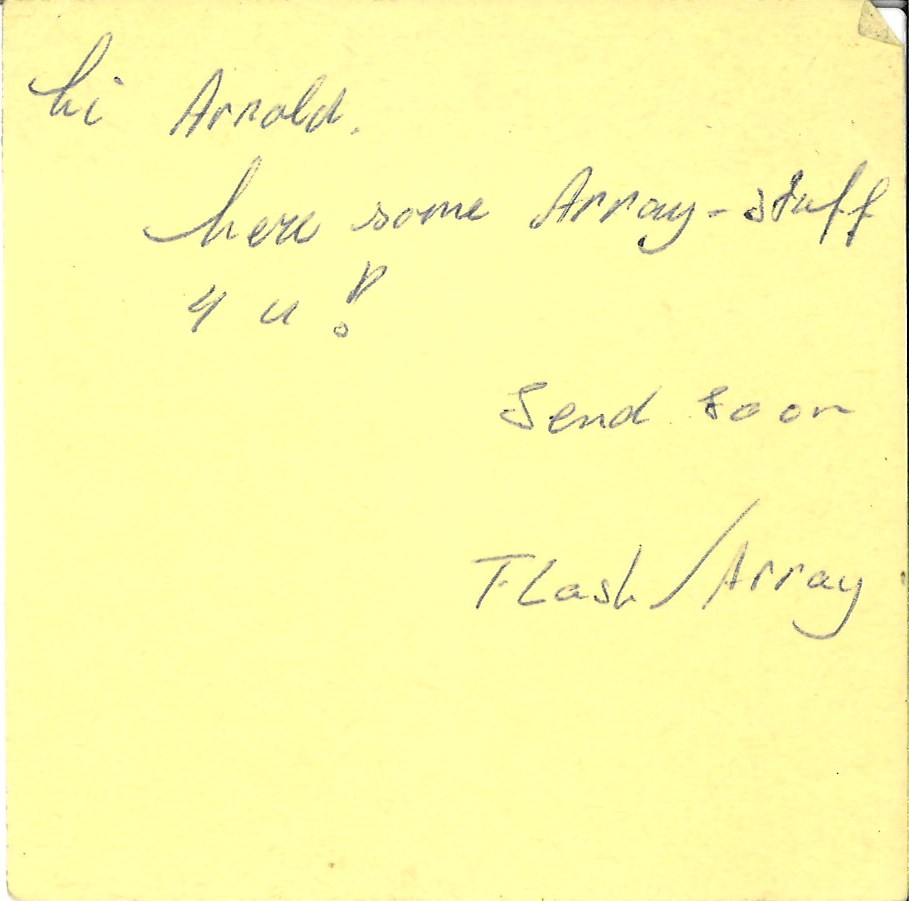 hi Arnold.
here some Array-stuff
4 u!
Send soon
Flash/Array